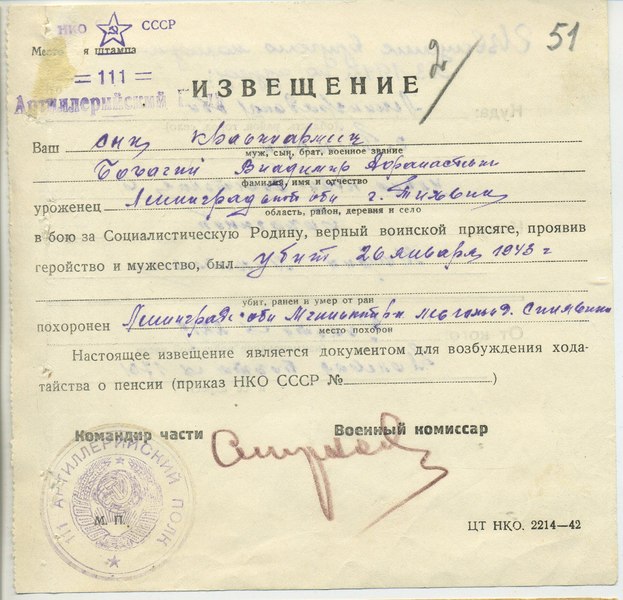 НКО СССР
51
Место я штампа
= 111 =
Артиллерийский
2
ИЗВЕЩЕНИЕ
Ваш сын красноармеец
муж, сын, брат, военное звание
Владимир Афанасьевич
фамилия, имя и отчество
уроженец Ленинградской обл г. Тихвин
область, район, деревня и село
в бою за Социалистическую Родину, верный воинской присяге, проявив
геройство и мужество, был убит 26 января 1943 г
убит, ранен и умер от ран
похоронен Ленинградс. обл Мгинский р-н д. Синявино
место похорон
Настоящее извещение является документом для возбуждения хода-
тайства о пенсии (приказ НКО СССР № )
Командир части Военный комиссар
111 АРТИЛЛЕРИЙСКИЙ ПОЛК
М. П.
ЦТ НКО. 2214—42